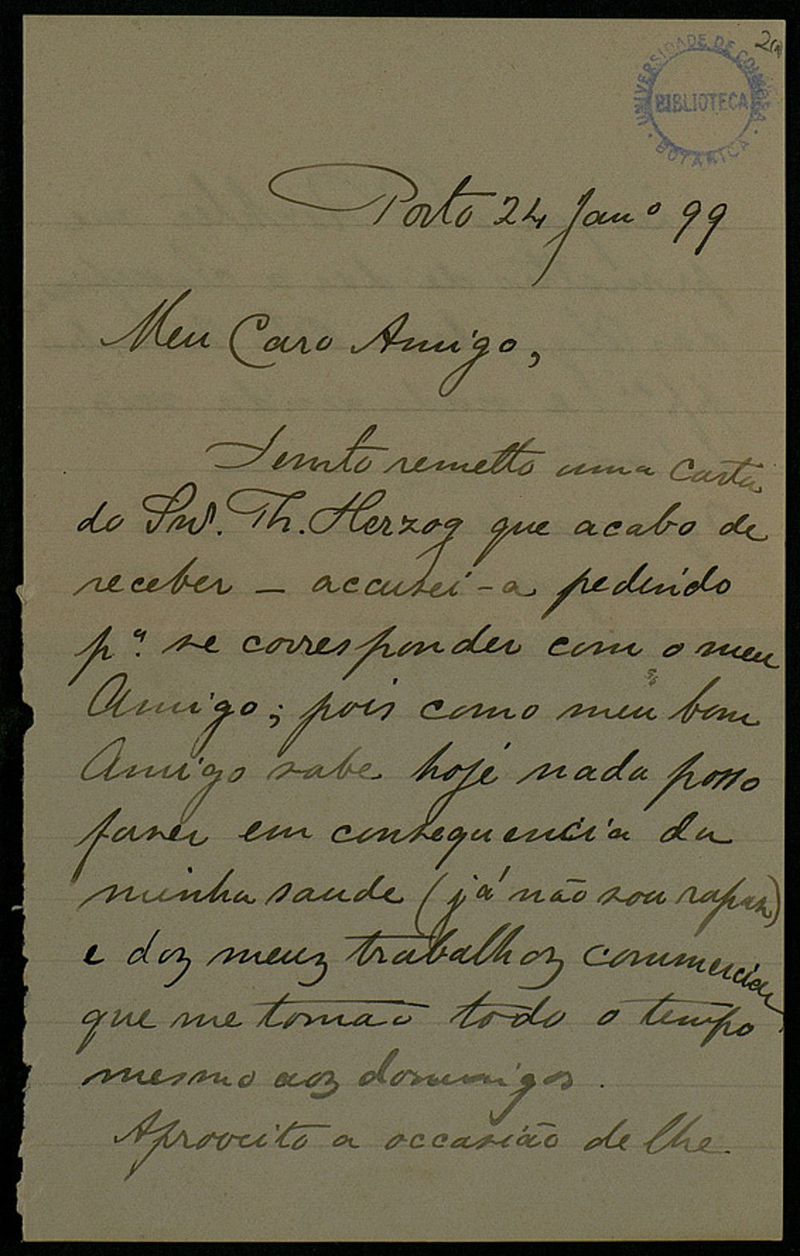 20
UNIVERSIDADE DE COIMBRA
BIBLIOTECA
BOTANICA
Porto 24 Janº 99
Meu Caro Amigo,
Junto remetto uma Carta
do Snr. Th. Herzog que acabo de
receber – accusei-a pedindo
pª. se corresponder com o meu
Amigo; pois como meu bom
Amigo sabe hoje nada posso
fazer em consequencia da
minha saude (já não sou rapaz)
e dos meus trabalhos commerciaes
que me tomão todo o tempo
mesmo aos domingos.
Aproveito a occasião de lhe